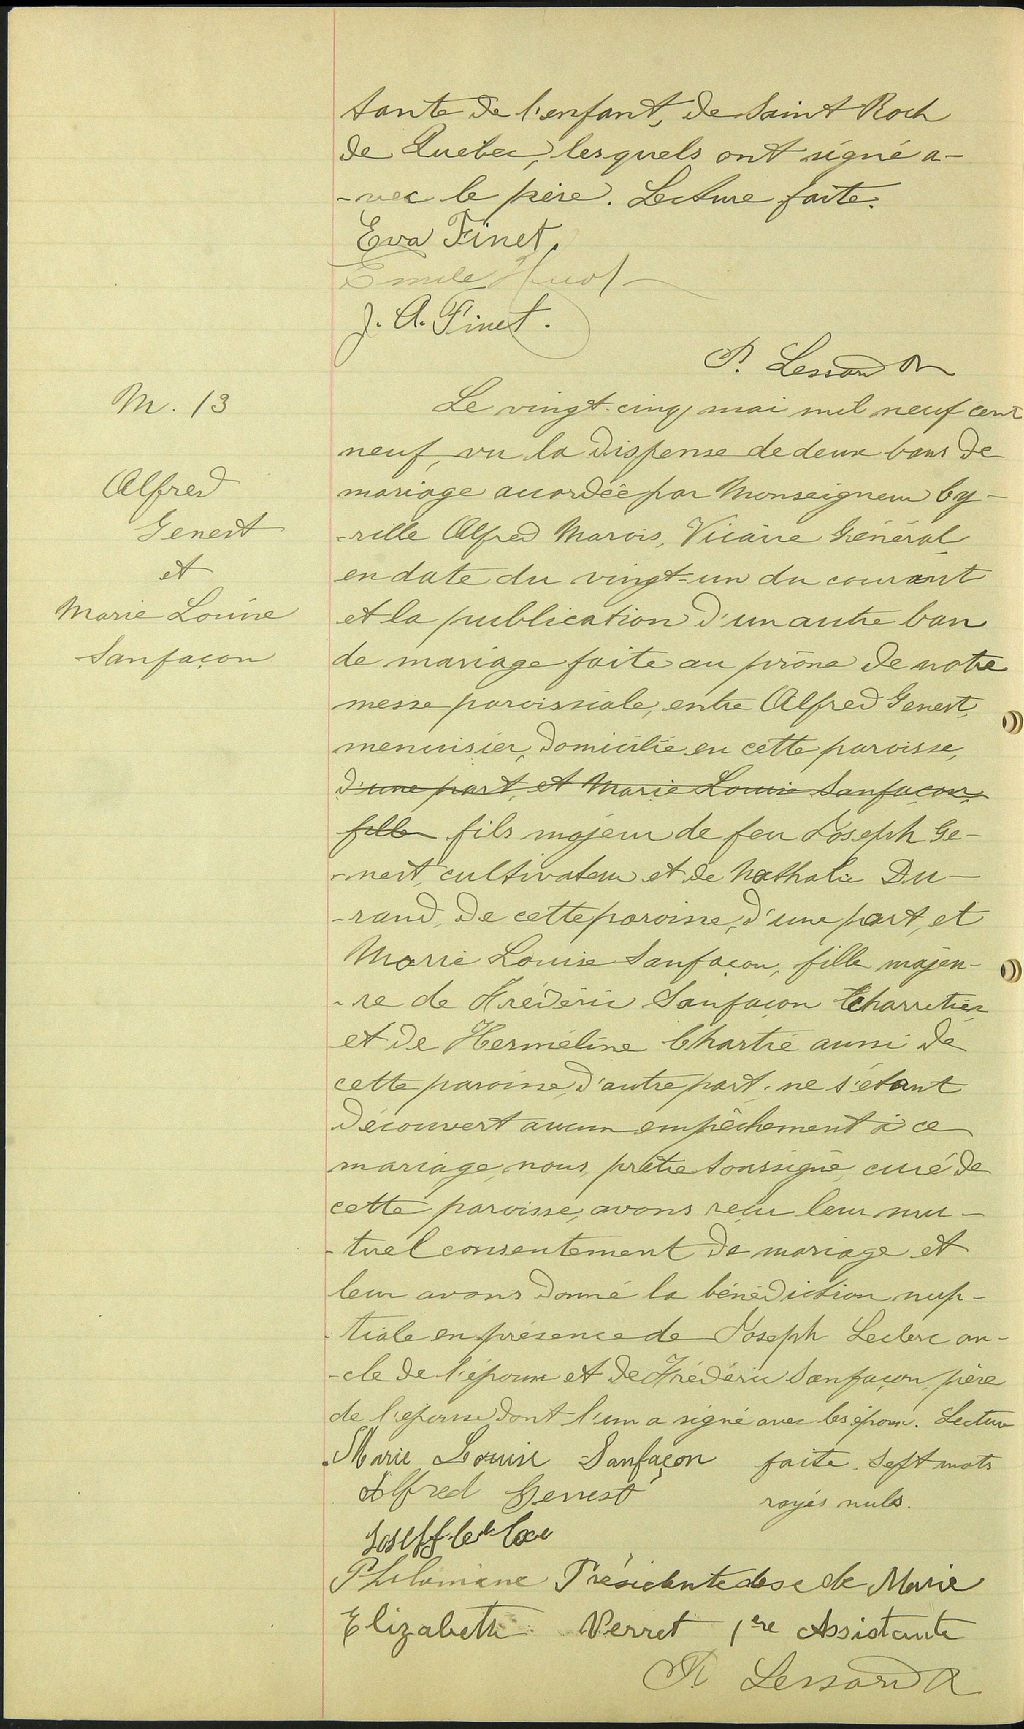 tante de l'enfant, de Saint Roch
de Quebec, lesquels ont signé a-
-vec le père. Lecture faite.
Eva Finet.
Emile Huot
J. A. Finet.
P. Lessard Ptre
M. 13
Alfred
Genest
et
Marie Louise
Sanfaçon
Le vingt-cinq mai mil neuf cent
neuf, vu la dispense de deux bans de
mariage accordée par Monseigneur Cy-
-rille Alfred Marois, Vicaire Général
en date du vingt-un du courant
et la publication d'un autre ban
de mariage faite au prône de notre
messe paroissiale, entre Alfred Genest,
menuisier, domicilié en cette paroisse,
d'une part, et Marie Louise Sanfaçon,
fille fils majeur de feu Joseph Ge-
-nest, cultivateur et de Nathalie Du-
-rand, de cette paroisse, d'une part, et
Marie Louise Sanfaçon, fille majeu-
-re de Frédéric Sanfaçon charretier
et de Herméline Chartré aussi de
cette paroisse, d'autre part. ne s'étant
découvert aucun empêchement à ce
mariage, nous, prêtre soussigné, curé de
cette paroisse, avons reçu leur mu-
-tuel consentement de mariage et
leur avons donné la bénédiction nup-
-tiale en présence de Joseph Leclerc on-
-cle de l'époux et de Frédéric Sanfaçon, père
de l'épouse dont l'un a signé avec les époux. Lecture
Marie Louise Sanfaçon faite. Sept mots
Alfred Genest rayés nuls.
Philomène Présidente des e de Marie
Elizabeth Verret 1re Assistante
P. Lessard